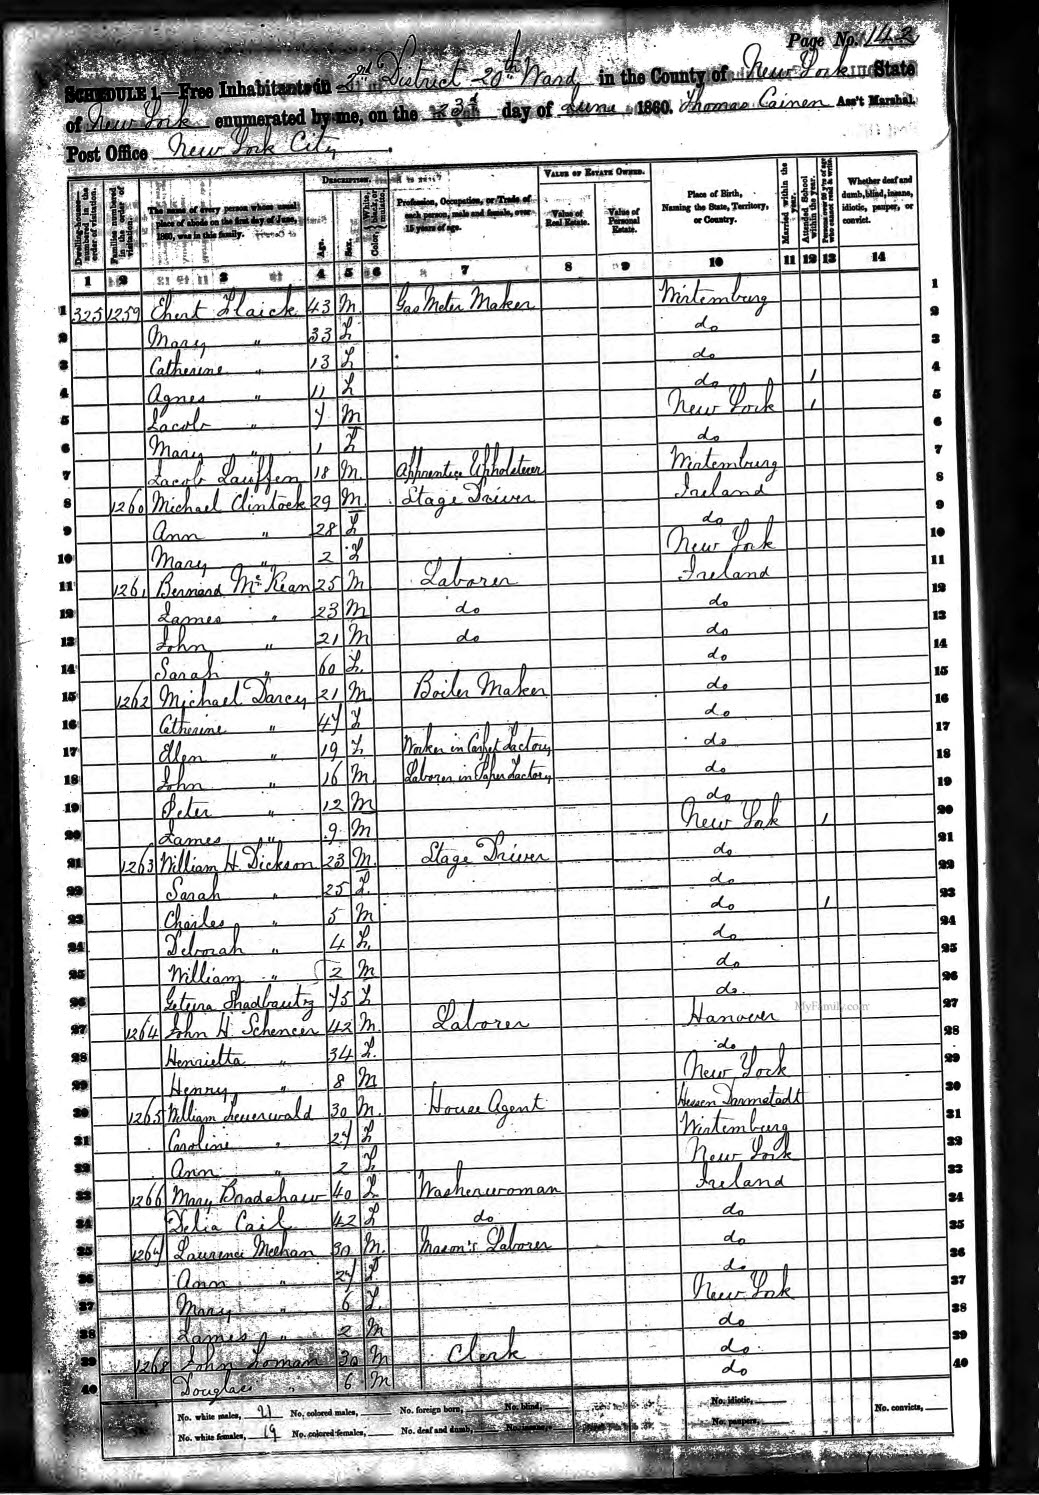 Page No. 142
SCHEDULE 1.—Free Inhabitants in 2nd District 20th Ward in the County of New York State
of New York enumerated by me, on the 23d day of June 1860. Thomas Cainen Ass't Marshal.
Post Office New York City.
DESCRIPTION. VALUE OF ESTATE OWNED.
Dwelling-houses—numbered in the order of visitation. Families numbered in the order of visitation. The name of every person whose usual place of abode on the first day of June, 1860, was in this family. Age. Sex. Color, White, black, or mulatto. Profession, Occupation, or Trade of each person, male and female, over 15 years of age. Value of Real Estate. Value of Personal Estate. Place of Birth, Naming the State, Territory, or Country. Married within the year. Attended School within the year. Persons over 20 y'rs of age who cannot read & write. Whether deaf and dumb, blind, insane, idiotic, pauper, or convict.
1 2 3 4 5 6 7 8 9 10 11 12 13 14
1 325 1259 43 M. Gas Meter Maker Wirtemburg 1
2 Mary " 33 F. do 2
3 Catherine " 13 F. do 3
4 Agnes " 11 F. do 1 4
5 Jacob " 7 M New York 1 5
6 Mary " 1 F. do 6
7 Jacob Lauffen 18 M. Apprentice Upholsterer Wirtemburg 7
8 1260 Michael Clintock 29 M. Stage Driver Ireland 8
9 Ann " 28 F. do 9
10 Mary " 2 F. New York 10
11 1261 Bernard McKean 25 M Laborer Ireland 11
12 James " 23 M do do 12
13 John " 21 M do do 13
14 Sarah " 60 F. do 14
15 1262 Michael Darcy 21 M Boiler Maker do 15
16 Catherine " 47 F. do 16
17 Ellen " 19 F. Worker in Carpet Factory do 17
18 John " 16 M. Laborer in Paper Factory do 18
19 Peter " 12 M do 19
20 James " 9 M New York 1 20
21 1263 William H. Dickson 23 M. Stage Driver do 21
22 Sarah " 25 F. do 22
23 Charles " 5 M do 1 23
24 Deborah " 4 F. do 24
25 William " 2 M do 25
26 75 F. do. 26
27 1264 John H. Schencer 42 M. Laborer Hanover 27
28 Henrietta " 34 F. do 28
29 Henry " 8 M New York 29
30 1265 William Feuerwald 30 M. House Agent Hessen Darmstadt 30
31 Caroline " 27 F. Wirtemburg 31
32 Ann " 2 F. New York 32
33 1266 Mary Bradshaw 40 F. Washerwoman Ireland 33
34 Delia Cail 42 F. do do 34
35 1267 Laurence Meehan 30 M. Mason's Laborer do 35
36 Ann " 27 F. do 36
37 Mary " 6 F. New York 37
38 James " 2 M do 38
39 1268 John 30 M Clerk do 39
40 Douglas " 6 M do 40
No. white males, 21 No. colored males, No. foreign born, No. blind, No. idiotic, No. convicts,
No. white females, 19 No. colored females, No. deaf and dumb, No. insane, No. paupers,
MyFamily.com